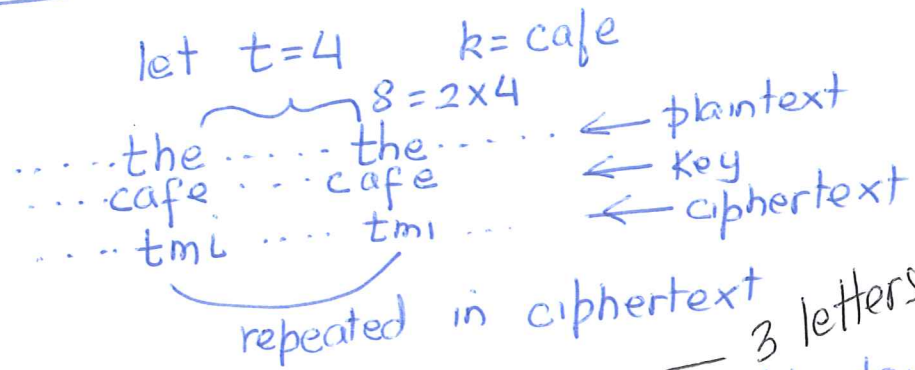 let t=4 k= cafe
8 = 2x4
.....the ...... the...... ← plaintext
....cafe ... cafe ← key
.... tmi .... tmi ... ← ciphertext
repeated in ciphertext
— 3 letters